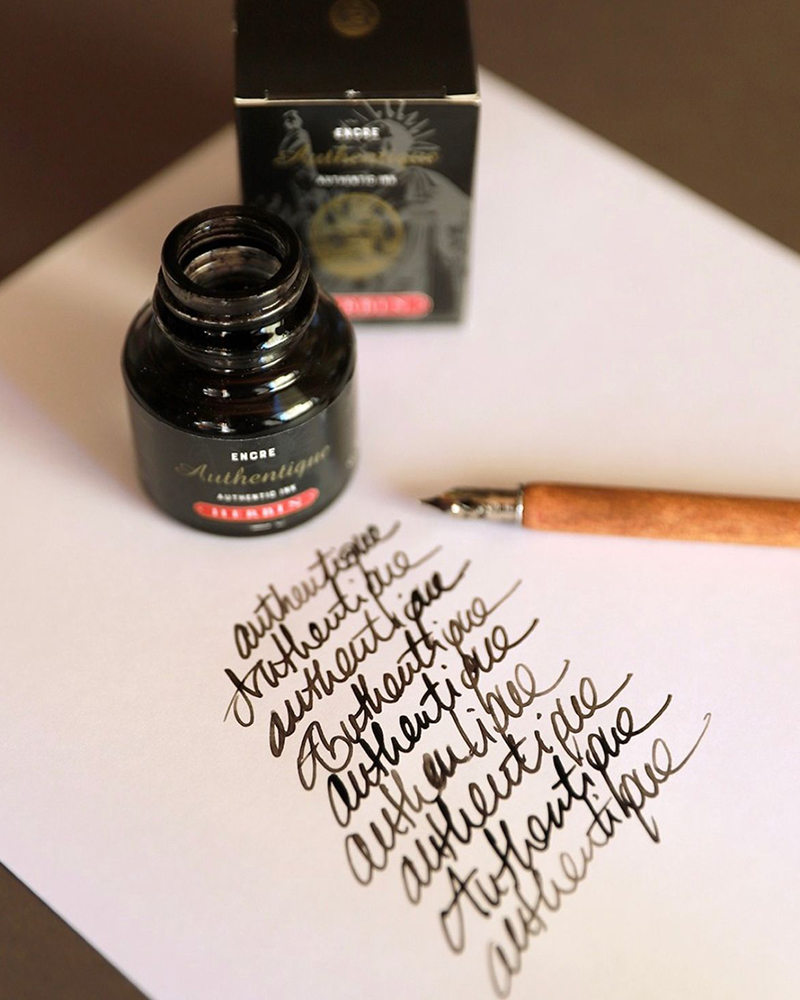 ENCRE
Authentique
AUTHENTIC INK
ENCRE
Authentique
AUTHENTIC INK
HERBIN
authentique
Authentique
authentique
Authentique
authentique
authentique
authentique
Authentique
authentique